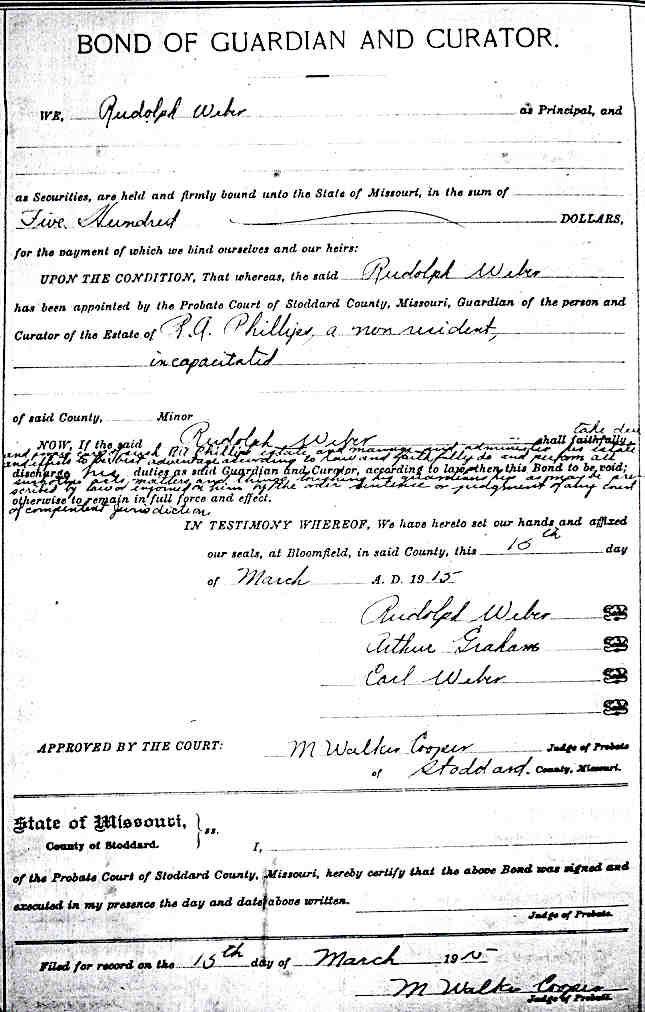 BOND OF GUARDIAN AND CURATOR.
WE, Rudolph Weber as Principal, and
as Securities, are held and firmly bound unto the State of Missouri, in the sum of
Five Hundred DOLLARS,
for the payment of which we bind ourselves and our heirs:
UPON THE CONDITION, That whereas, the said Rudolph Weber
has been appointed by the Probate Court of Stoddard County, Missouri, Guardian of the person and
Curator of the Estate of P.A. Phillips, a non resident,
incapacitated
of said County, Minor
take due
NOW, If the said Rudolph Weber shall faithfully
and proper care of such P.A. Phillips estate and manage and administer his estate
and effects to best advantage according to law and faithfully do and perform all
discharge his duties as said Guardian and Curator, according to law, then this Bond to be void;
such acts matters and things touching his guardianship as may be pre
scribed by law or enjoined on him by the order sentence or judgment of any court
otherwise to remain in full force and effect.
of competent jurisdiction.
IN TESTIMONY WHEREOF, We have hereto set our hands and affixed
our seals, at Bloomfield, in said County, this 15th day
of March A. D. 1915
Rudolph Weber
Arthur Graham
Carl Weber
APPROVED BY THE COURT: M Walker Cooper Judge of Probate
of Stoddard County, Missouri.
State of Missouri, } ss.
County of Stoddard. I,
of the Probate Court of Stoddard County, Missouri, hereby certify that the above Bond was signed and
executed in my presence the day and date above written.
Judge of Probate.
Filed for record on the 15th day of March 1915
M Walker Cooper
Judge of Probate.